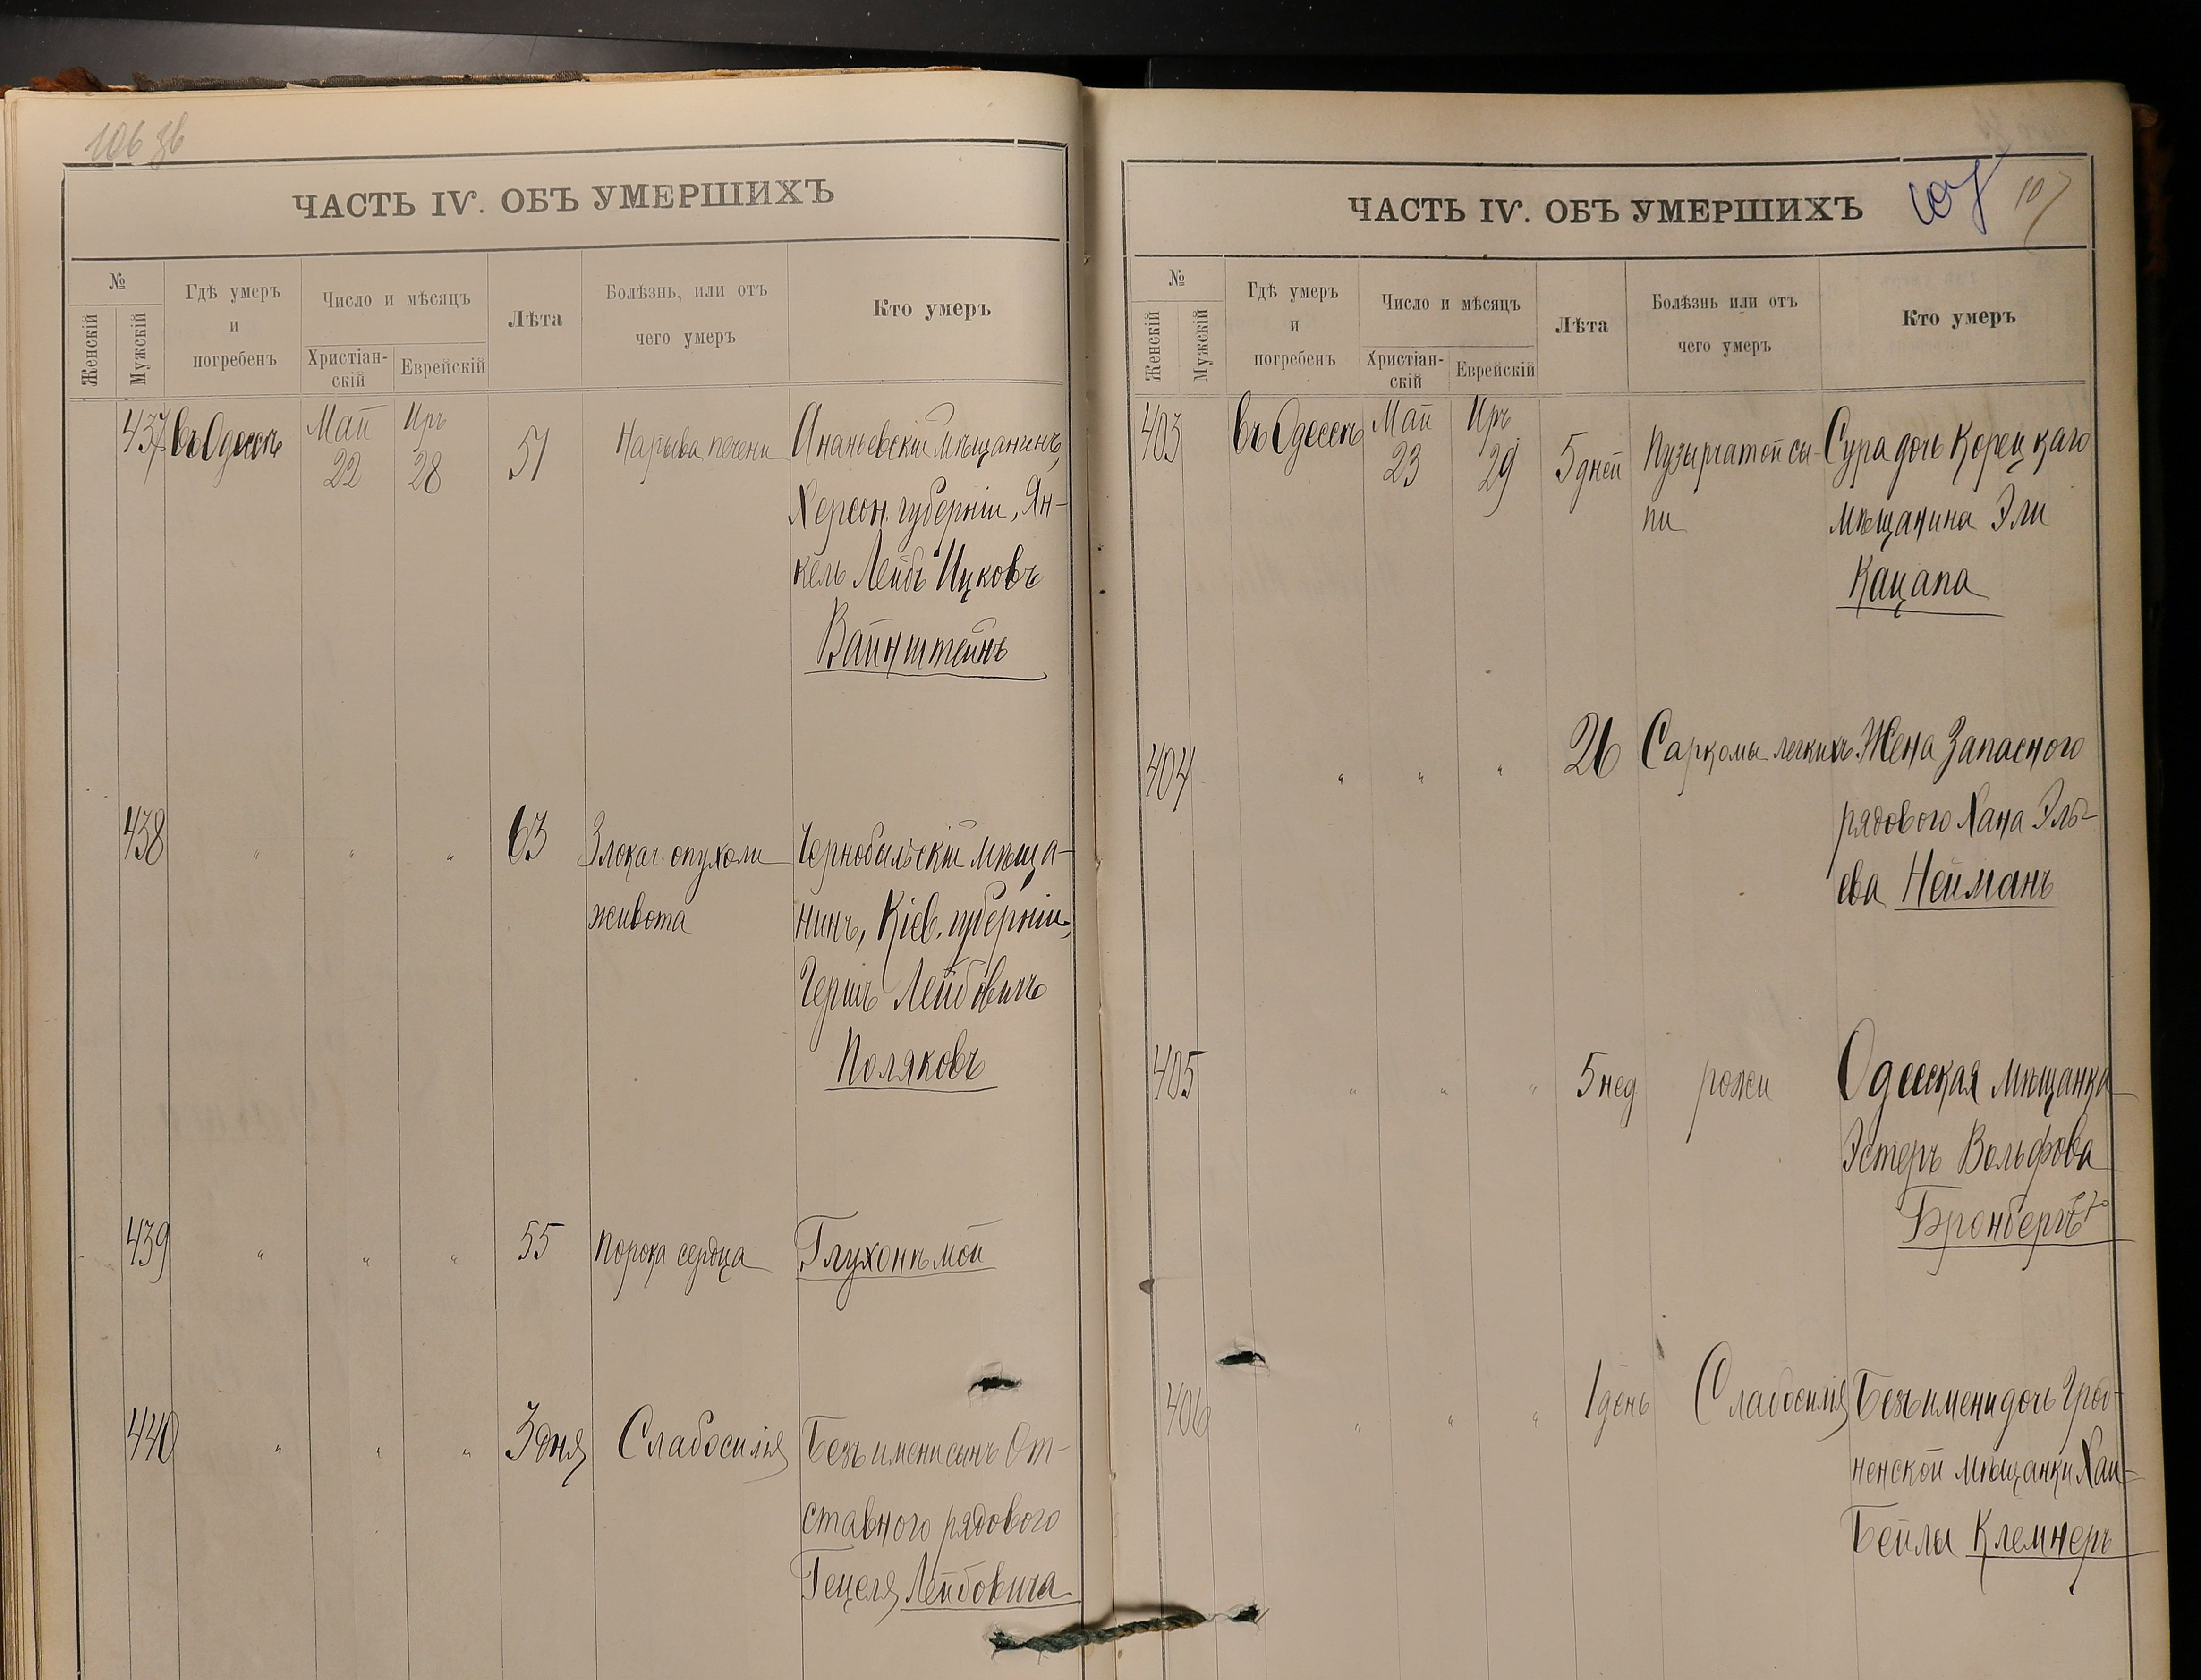 106 зв
ЧАСТЬ IV. ОБЪ УМЕРШИХЪ
№
Женскій
Мужскій
Гдѣ умеръ
и
погребенъ
Число и мѣсяцъ
Христіан-
скій
Еврейскій
Лѣта
Болѣзнь, или отъ
чего умеръ
Кто умеръ
437 въ Одессѣ Май 22 Иръ 28 51 Нарыва печени Ананьевскій мѣщанинъ,
Херсон. губерніи, Ян-
кель Лейбъ Ицковъ
Вайнштейнъ
438 " " " 63 Злокач. опухоли Чернобыльскій мѣща-
живота нинъ, Кіев. губерніи,
Гершъ Лейбовичъ
Поляковъ
439 " " " 55 Порока сердца Глухонѣмой
440 " " " 3 дня Слабосилія Безъ имени сынъ От-
ставного рядового
Гецеля Лейбовича
107
107
ЧАСТЬ IV. ОБЪ УМЕРШИХЪ
№
Женскій
Мужскій
Гдѣ умеръ
и
погребенъ
Число и мѣсяцъ
Христіан-
скій
Еврейскій
Лѣта
Болѣзнь или отъ
чего умеръ
Кто умеръ
403 въ Одессѣ Май 23 Иръ 29 5 дней Пузырчатой сы- Сура дочь Корецкаго
пи мѣщанина Эли
Кацапа
404 " " " 26 Саркомы легкихъ Жена Запасного
рядового Хана Эль-
ева Нейманъ
405 " " " 5 нед рожи Одесская мѣщанка
Эстеръ Вольфова
Бронбергъ
406 " " " 1 день Слабосилія Безъ имени дочь Грод-
ненской мѣщанки Хаи-
Бейлы Клемнеръ